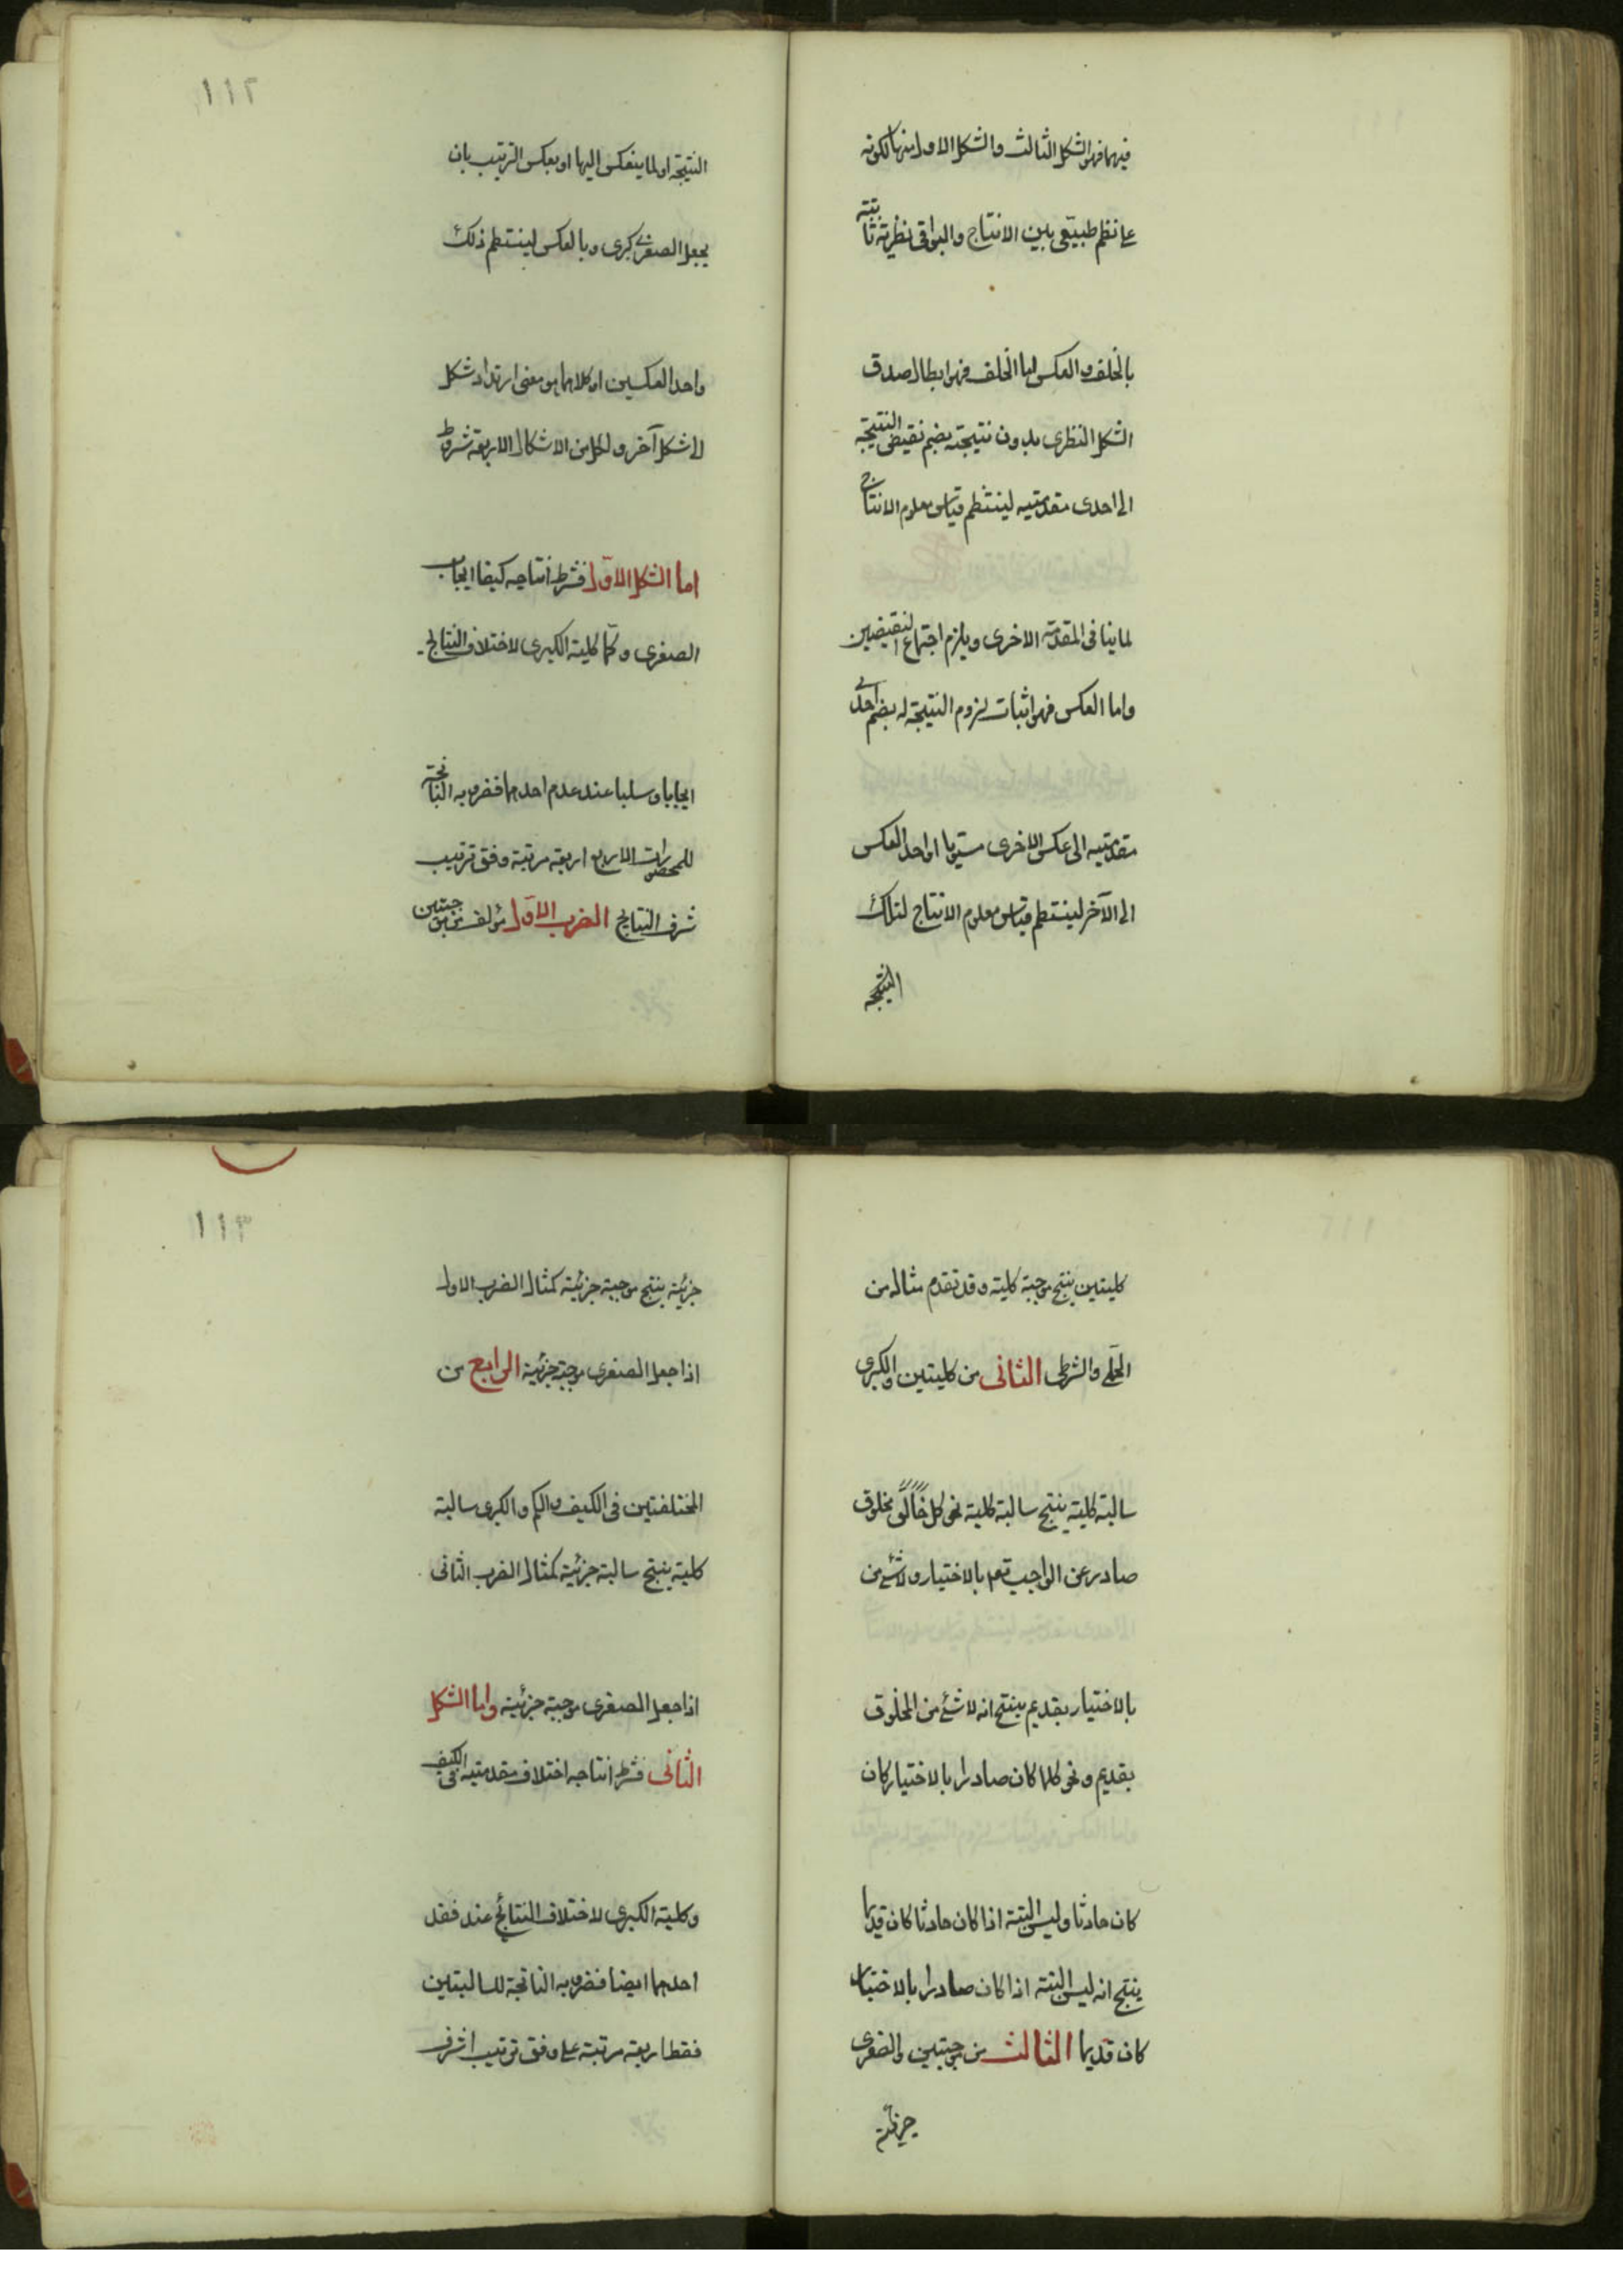 فيهما فهو الشكل الثالث والشكل الاول منها لكونه
على نظم طبيعى بين الانتاج والبواقى نظرية ثابتة
بالخلف والعكس اما الخلف فهو ابطال صدق
الشكل النظرى بدون نتيجته بضم نقيض النتيجة
الى احدى مقدمتيه لينتظم قياس معلوم الانتاج
لما ينافى المقدمة الاخرى ويلزم اجتماع النقيضين
واما العكس فهو اثبات لزوم النتيجة له بضم احدى
مقدمتيه الى عكس الاخرى مستويا او احد العكس
الى الآخر لينتظم قياس معلوم الانتاج لتلك
النتيجة
١١٢
النتيجة او لما ينعكس اليها او بعكس الترتيب بان
يجعل الصغرى كبرى وبالعكس لينتظم ذلك
واحد العكسين او كلاهما هو معنى ارتداد شكل
لا شكل آخر ولكل من الاشكال الاربعة شروط
اما الشكل الاول فشرط انتاجه كيفا ايجاب
الصغرى وكما كلية الكبرى لاختلاف النتايج
ايجابا وسلبا عند عدم احدهما فضروبه الناتجة
للمحصورات الاربع اربعة مرتبة وفق ترتيب
شرف النتايج الضرب الاول مؤلف من موجبتين
كليتين ينتج موجبة كلية وقد تقدم مثاله من
الحملى والشرطى الثانى من كليتين والكبرى
سالبة كلية ينتج سالبة كلية نحو كل مخلوق
صادر عن الواجب تعم بالاختيار ولا شئ من
بالاختيار بقديم ينتج انه لا شئ من المخلوق
بقديم ونحو كلما كان صادرا بالاختيار كان
كان حادثا وليس البتة اذا كان حادثا كان قديما
ينتج انه ليس البتة اذا كان صادرا بالاختيار
كان قديما الثالث من موجبتين والصغرى
جزئية
١١٣
جزئية ينتج موجبة جزئية كمثال الضرب الاول
اذا جعل الصغرى موجبة جزئية الرابع من
المختلفتين فى الكيف والكم والكبرى سالبة
كلية ينتج سالبة جزئية كمثال الضرب الثانى
اذا جعل الصغرى موجبة جزئية واما الشكل
الثانى فشرط انتاجه اختلاف مقدمتيه فى الكيف
وكلية الكبرى لاختلاف النتائج عند فقد
احدهما ايضا فضروبه الناتجة للسالبتين
فقط اربعة مرتبة على وفق ترتيب اشرف